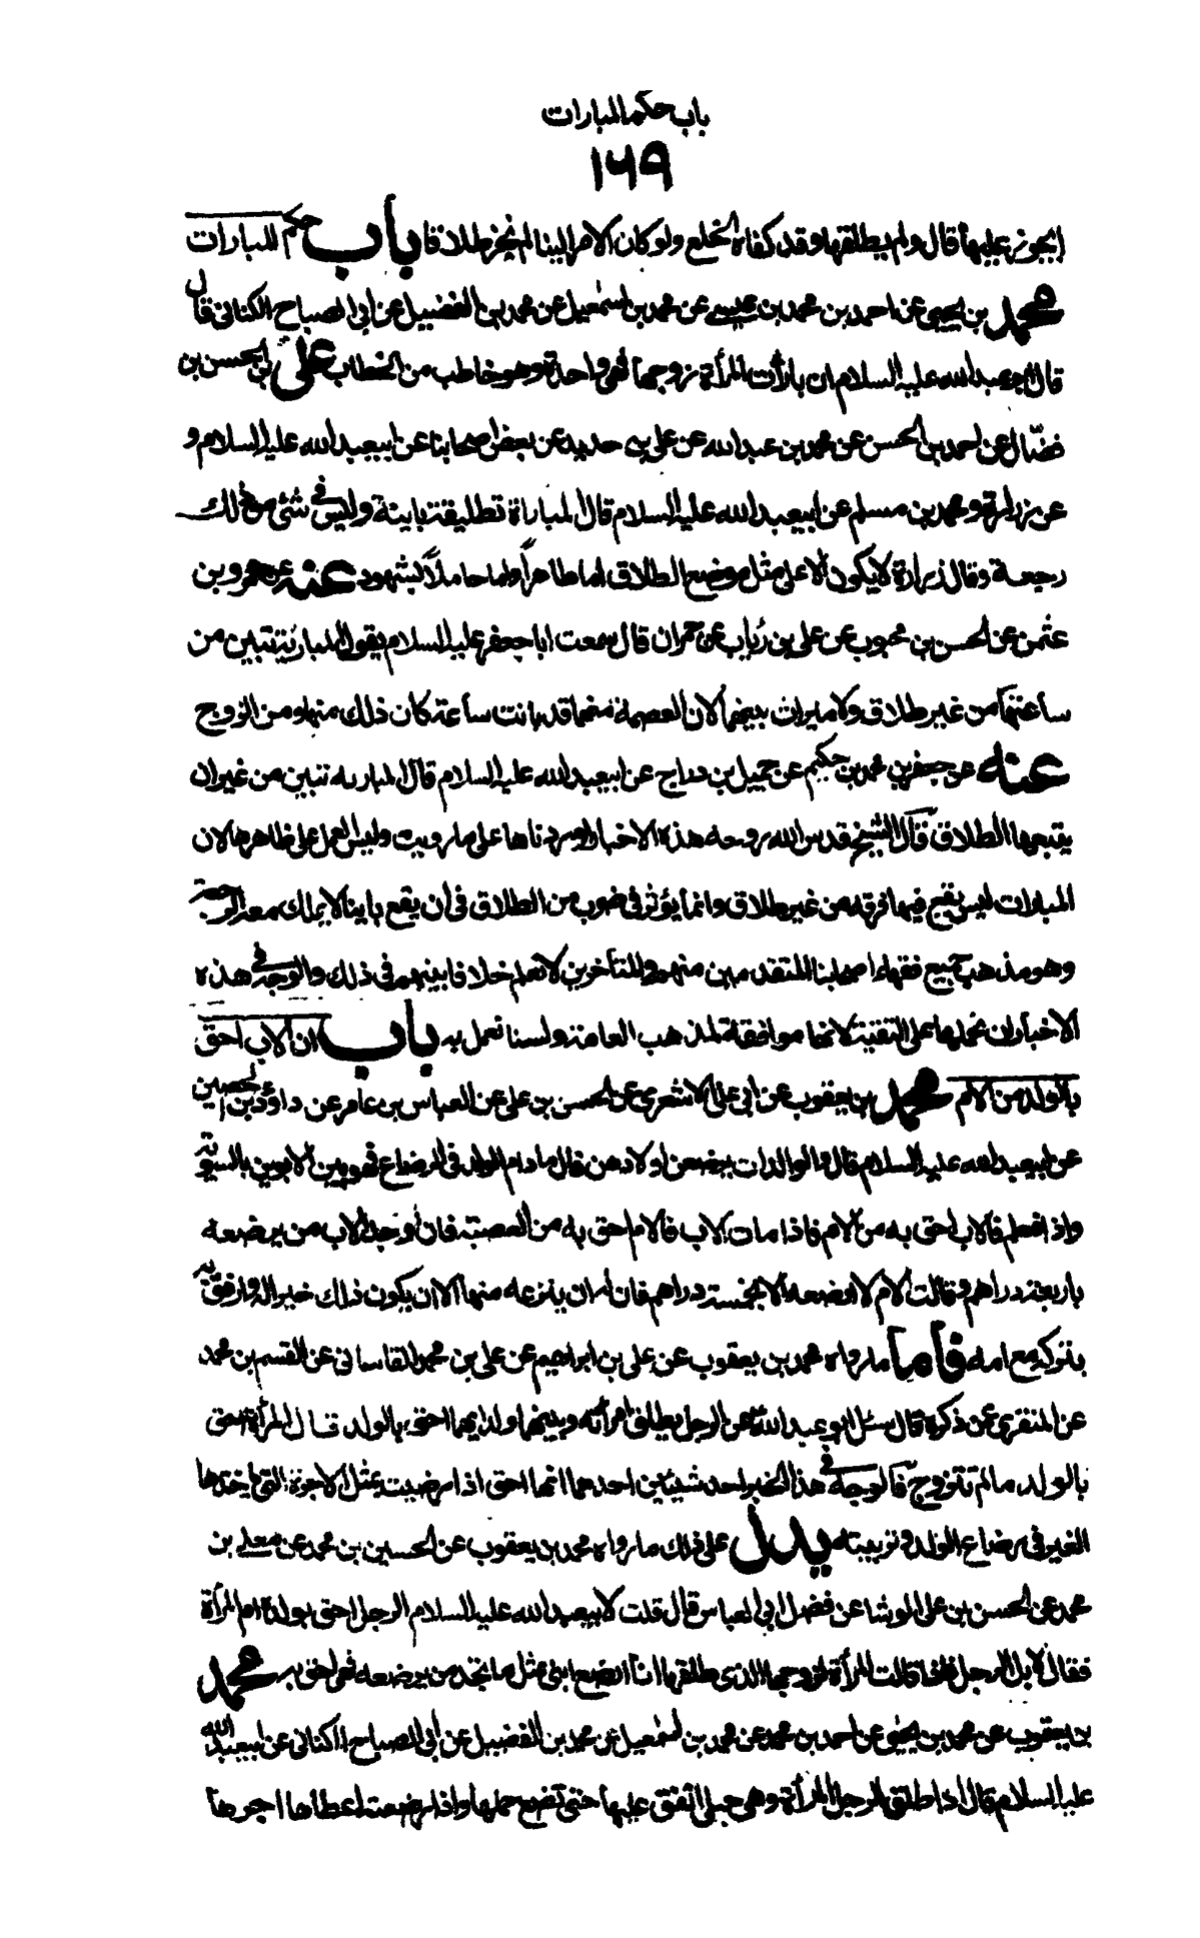 باب حكم المبارات
١٦٩
ايجوز عليها قال ولم يطلقها وقد كفاه الخلع ولو كان الامر الينا لم نجز طلاقا باب حكم المبارات
محمد بن يحيى عن احمد بن محمد بن عيسى عن محمد بن اسمعيل عن محمد بن الفضيل عن ابى الصباح الكنانى قال
قال ابو عبد الله عليه السلام ان بارأت المرأة زوجها فهى واحدة وهو خاطب من الخطاب على بن الحسن بن
فضّال عن احمد بن الحسن عن محمد بن عبد الله عن على بن حديد عن بعض اصحابنا عن ابيعبد الله عليه السلام و
عن زرارة ومحمد بن مسلم عن ابيعبد الله عليه السلام قال المباراة تطليقة باينة وليس فى شئ من ذلك
رجعة وقال زرارة لا يكون الا على مثل موضع الطلاق اما طاهراً واما حاملاً بشهود عنه عن عمرو بن
عثمن عن الحسن بن محبوب عن على بن رئاب عن حمران قال سمعت ابا جعفر عليه السلام يقول المبارئة تبين من
ساعتها من غير طلاق ولا ميراث بينهما لان العصمة منهما قد بانت ساعة كان ذلك منها ومن الزوج
عنه عن جعفر بن محمد بن حكيم عن جميل بن دراج عن ابيعبد الله عليه السلام قال المباريه تبين من غير ان
يتبعها الطلاق قال الشيخ قدس الله روحه هذه الاخبار اوردناها على ما رويت وليس العمل على ظاهرها لان
المبارات ليس يقع فيها فرقه من غير طلاق وانما يؤثر فى ضرب من الطلاق فى ان يقع باينا لا يملك معه الرجعة
وهو مذهب جميع فقهاء اصحابنا المتقدمين منهم والمتأخرين لا نعلم خلافا بينهم فى ذلك والوجه فى هذه
الاخبار ان نحملها على التقية لانها موافقة لمذهب العامة ولسنا نعمل به باب ان الاب احق
بالولد من الام محمد بن يعقوب عن ابى على الاشعرى عن الحسن بن على عن العباس بن عامر عن داؤد بن الحصين
عن ابيعبد الله عليه السلام قال والوالدات يرضعن اولادهن قال ما دام الولد فى الرضاع فهو بين الابوين بالسوية
واذا فطم فالاب احق به من الام فاذا مات الاب فالام احق به من العصبة فان وجد الاب من يرضعه
باربعة دراهم وقالت الام لا ارضعه الا بخمسة دراهم فان له ان ينزعه منها الا ان يكون ذلك خير اله وارفق به
بتركه مع امه فاما ما رواه محمد بن يعقوب عن على بن ابراهيم عن على بن محمد القاسانى عن القسم بن محمد
عن المنقرى عمن ذكره قال سئل ابو عبد الله عن الرجل يطلق امرأته وبينهما ولد ايهما احق بالولد قال المرأة احق
بالولد ما لم تتزوج فالوجه فى هذا الخبر احد شيئين احدهما انها احق اذا رضيت بمثل الاجرة التى ياخذها
الغير فى رضاع الولد وتربيته يدل على ذلك ما رواه محمد بن يعقوب عن الحسين بن محمد عن معلى بن
محمد عن الحسن بن على الوشا عن فضل ابى العباس قال قلت لابيعبد الله عليه السلام الرجل احق بولده ام المرأة
فقال لا بل الرجل فاذا قالت المرأة لزوجها الذى طلقها انا ارضع ابنى بمثل ما تجد من يرضعه فهى احق به محمد
بن يعقوب عن محمد بن يحيى عن احمد بن محمد عن محمد بن اسمعيل عن محمد بن الفضيل عن ابى الصباح الكنانى عن ابيعبد الله
عليه السلام قال اذا طلق الرجل المرأة وهى حبلى انفق عليها حتى تضع حملها واذا ارضعته اعطاها اجرها